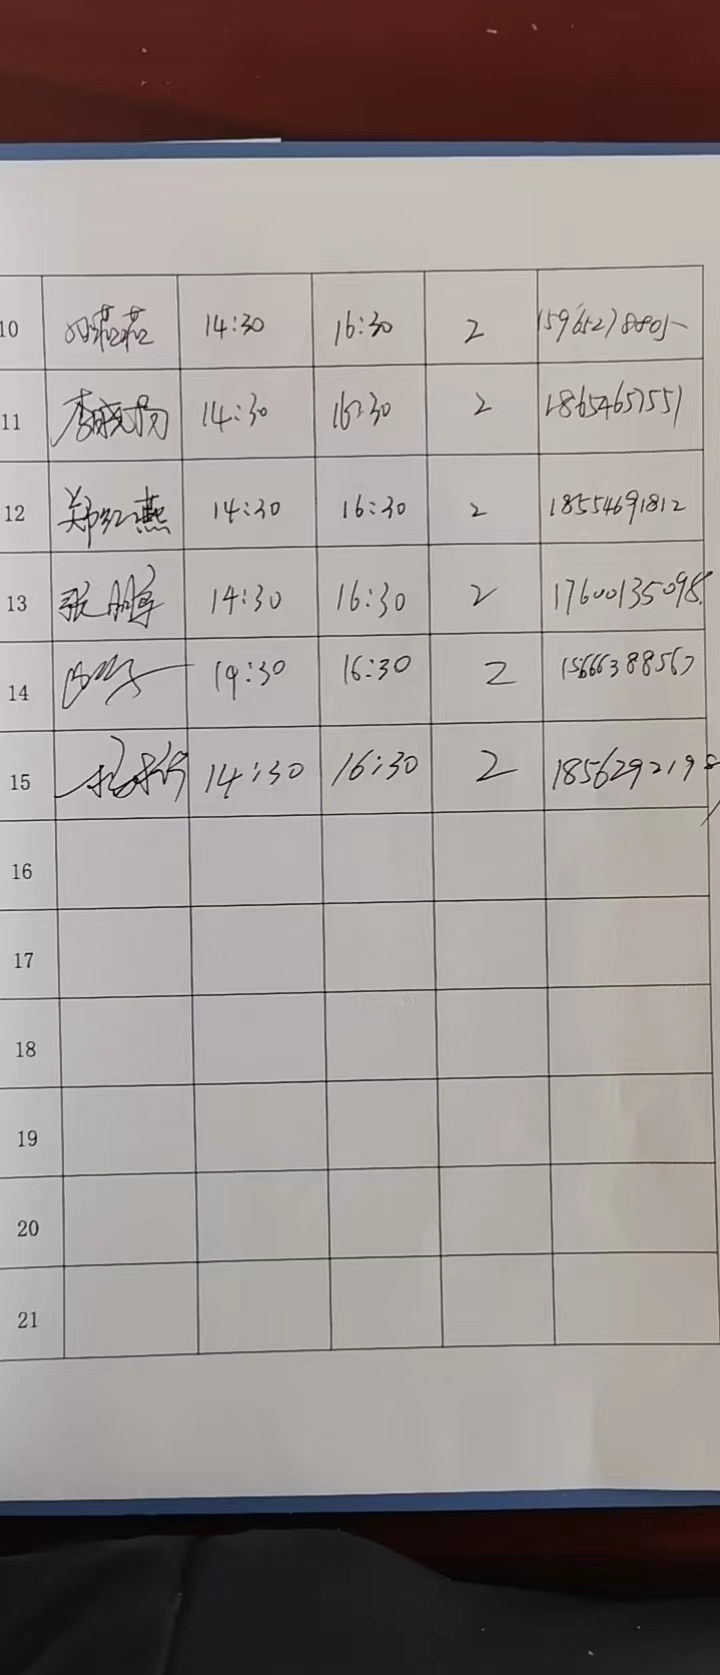 10 14:30 16:30 2 15965278805
11 李晓杨 14:30 16:30 2 18654657551
12 郑红燕 14:30 16:30 2 18554691812
13 张鹏 14:30 16:30 2 17600135098
14 14:30 16:30 2 15666388567
15 14:30 16:30 2 1856292198
16
17
18
19
20
21